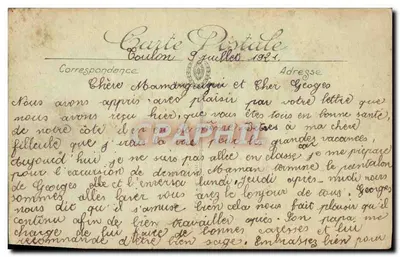 Carte Postale
Toulon 9 Juillet 1921
Correspondance Adresse
Chère Mamanguique et Cher Geoges
Nous avons appris avec plaisir par votre lettre que
nous avons reçu hier, que vous êtes tous en bonne santé,
de notre côté de même à ma chère
filleule que j'irai la voir pour les grandes vacances.
Aujourd'hui je ne suis pas allée en classe car je me prépare
pour l'excursion de demain. Maman termine le pantalon
de Georges et l'inversa lundi. Jeudi après-midi nous
sommes allés laver vous avez le bonjour de tous. Georges
nous dit qu'il s'amuse bien cela nous fait plaisir qu'il
continu afin de bien travailler après. Son papa me
charge de lui faire de bonnes caresses et lui
recommande d'être bien sage. Embrassez bien pour